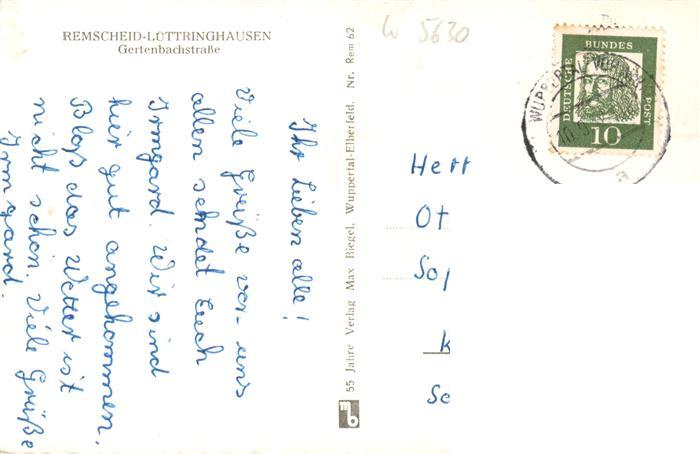 REMSCHEID-LÜTTRINGHAUSEN
Gertenbachstraße
Ihr Lieben alle!
Viele Grüße von uns
allen sendet Euch
Irmgard. Wir sind
hier gut angekommen.
Bloß das Wetter ist
nicht schön. Viele Grüße
Irmgard.
55 Jahre Verlag Max Biegel, Wuppertal-Elberfeld. Nr. Rem 62
mb
W 5630
DEUTSCHE BUNDESPOST
10
WUPPERTAL
a
Herr
Ot
So
K
Se